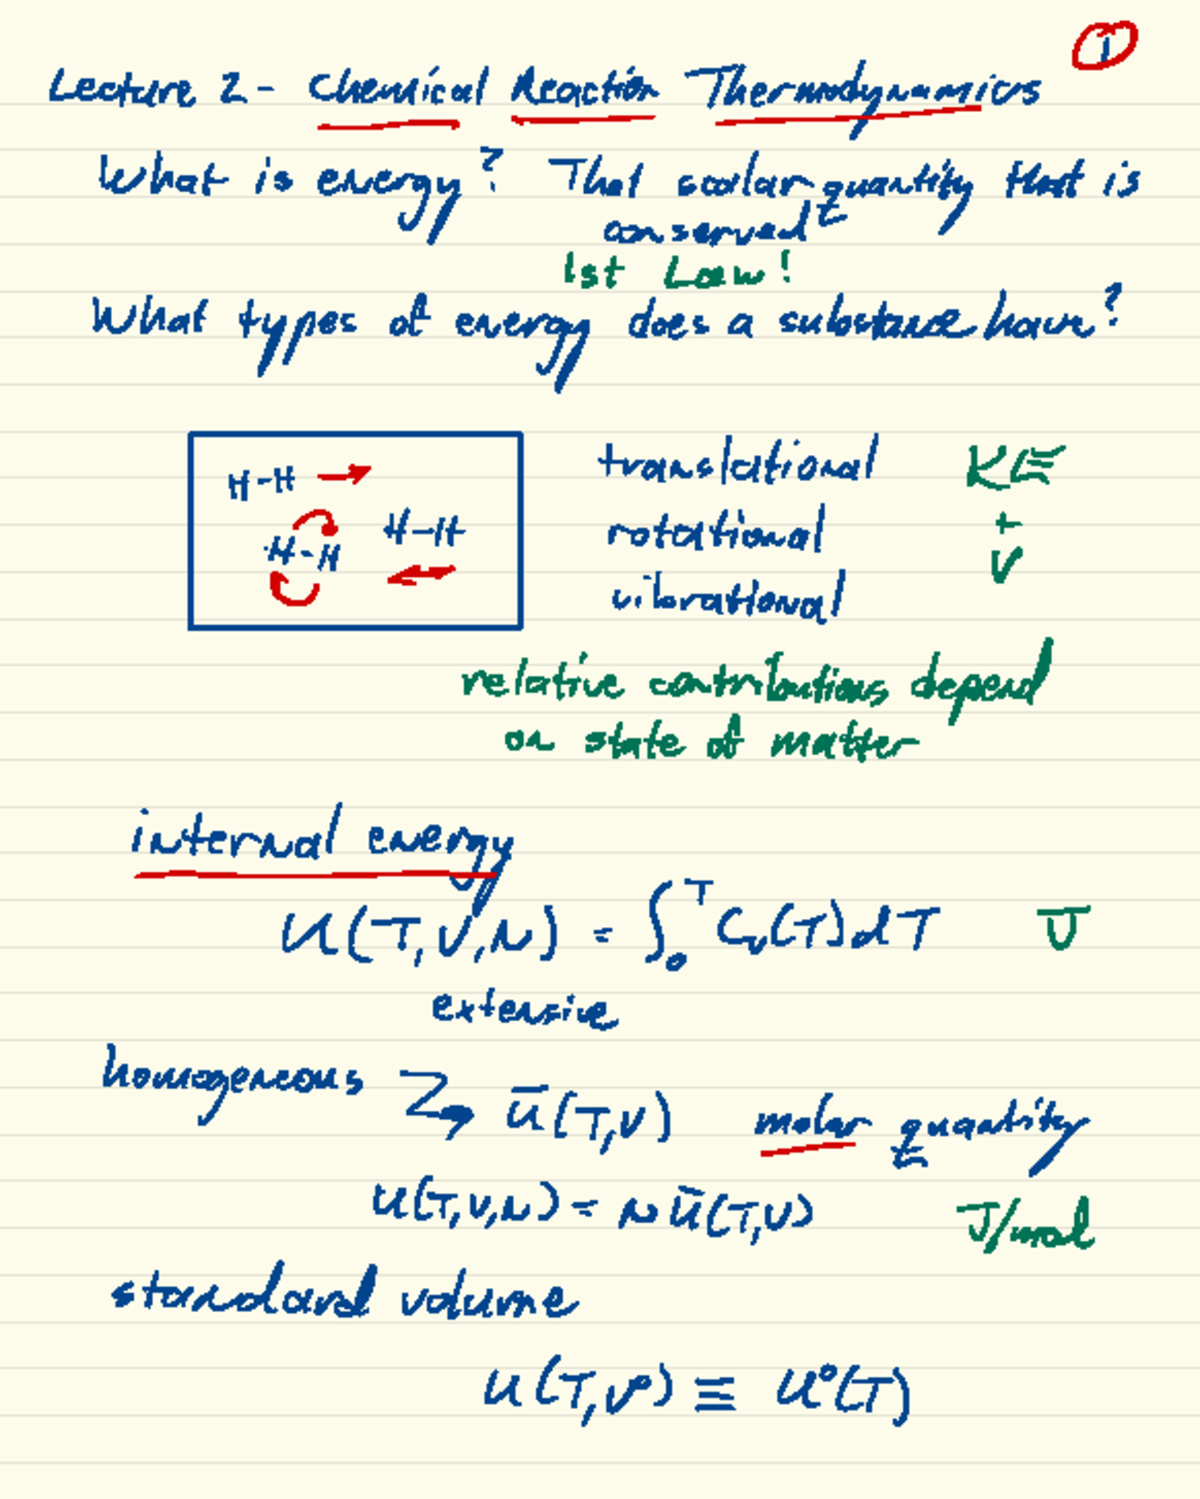 1
Lecture 2 - Chemical Reaction Thermodynamics
What is energy? That scalar quantity that is
conserved
1st Law!
What types of energy does a substance have?
H-H
H-H
H-H
translational KE
rotational +
vibrational V
relative contributions depend
on state of matter
internal energy
U(T,V,N) = ∫₀ᵀ Cᵥ(T)dT J
extensive
homogeneous → ū(T,V) molar quantity
U(T,V,N) = N ū(T,V) J/mol
standard volume
U(T,V°) ≡ U°(T)